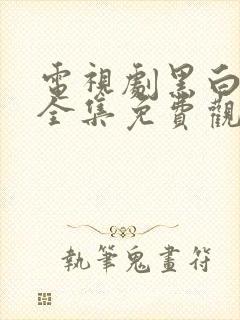 電視劇黑白
全集免費觀
執筆鬼畫符